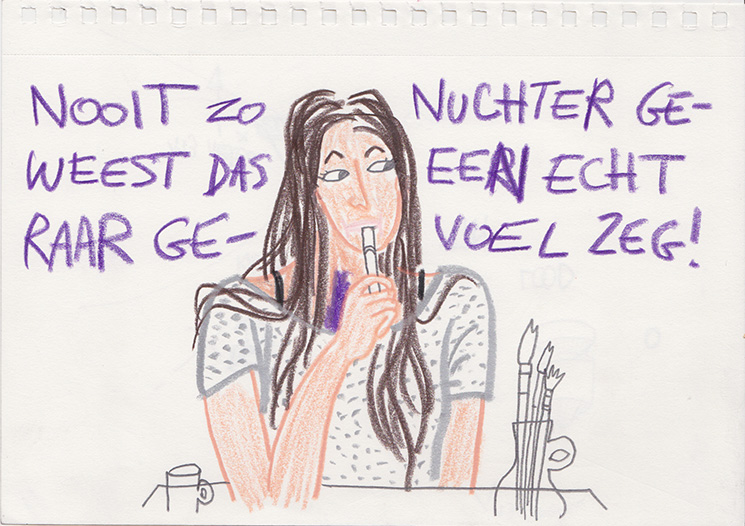 NOOIT ZO NUCHTER GE-
WEEST DAS EEN ECHT
RAAR GE- VOEL ZEG!